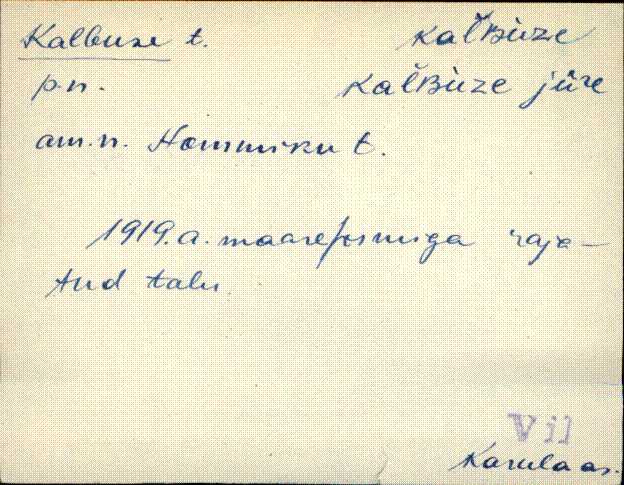 Kalbuse t. kaʹlʙùze
p.n. kaʹlʙùze jüre
am.n. Hommiku t.
1919.a. maareformiga raja-
tud talu.
Vil
Karula as.